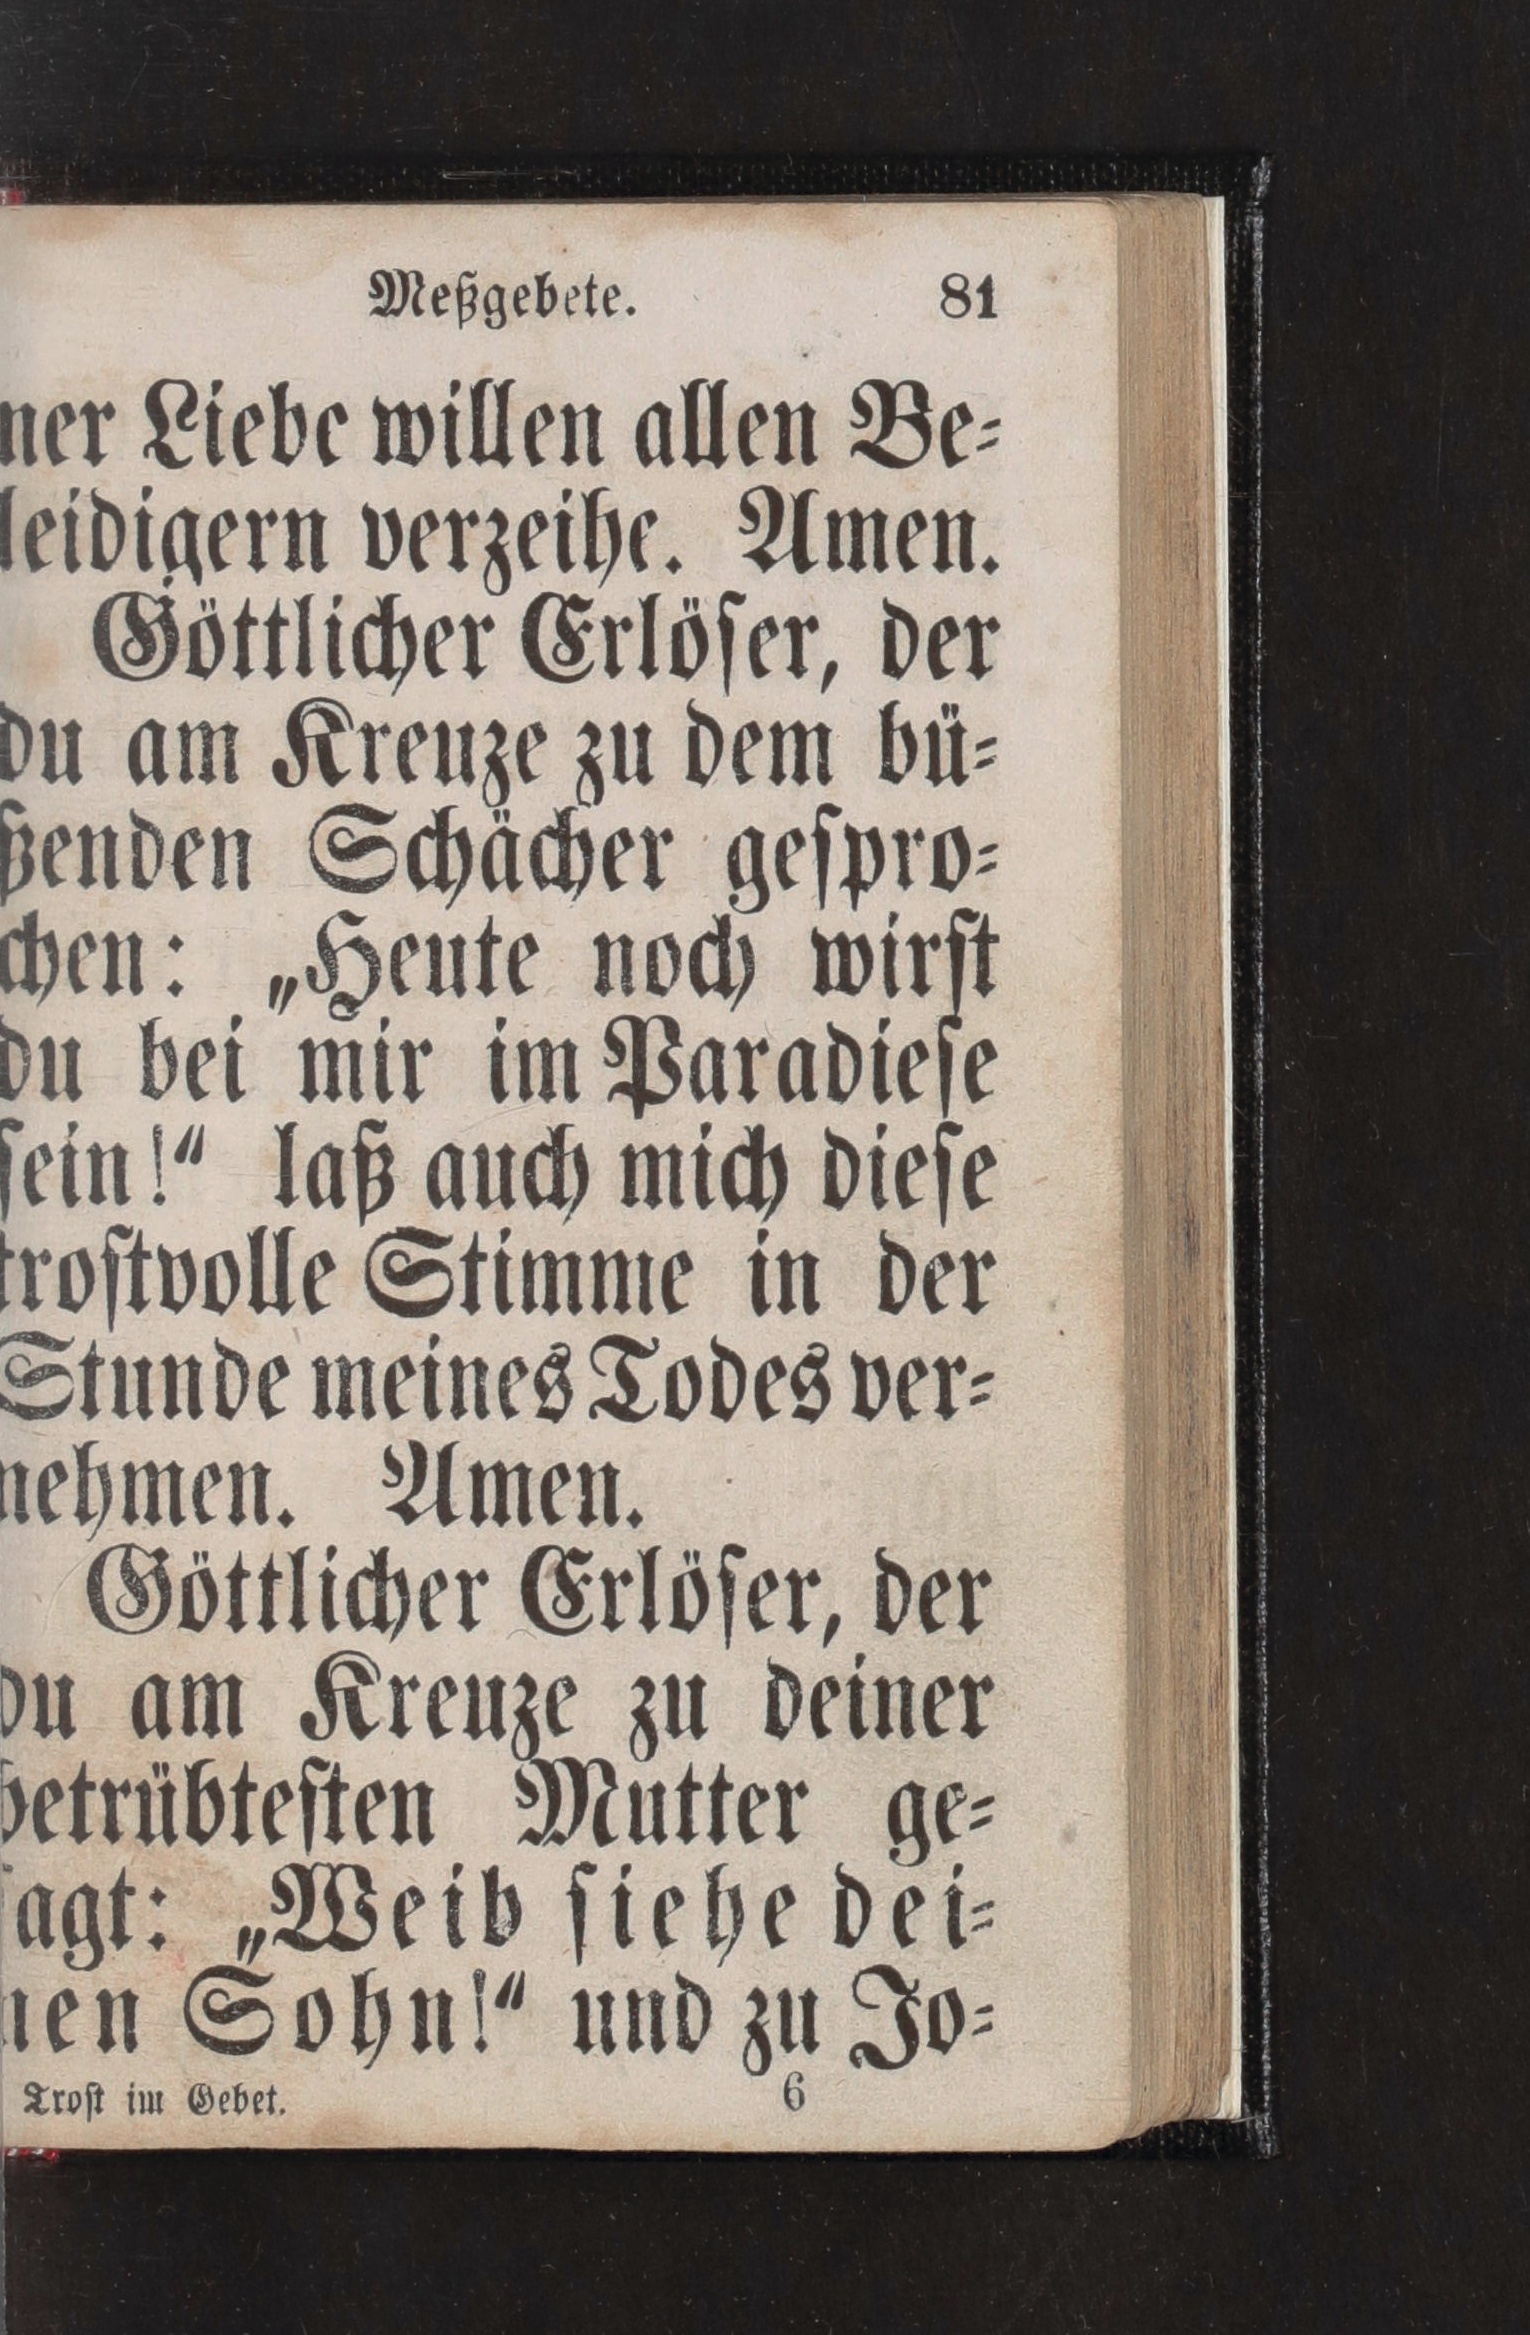 Meßgebete. 81
ner Liebe willen allen Be-
leidigern verzeihe. Amen.
Göttlicher Erlöser, der
du am Kreuze zu dem bü-
ßenden Schächer gespro-
chen: „Heute noch wirst
du bei mir im Paradiese
sein!“ laß auch mich diese
trostvolle Stimme in der
Stunde meines Todes ver-
nehmen. Amen.
Göttlicher Erlöser, der
du am Kreuze zu deiner
betrübtesten Mutter ge-
sagt: „Weib siehe dei-
nen Sohn!“ und zu Jo-
Trost im Gebet. 6